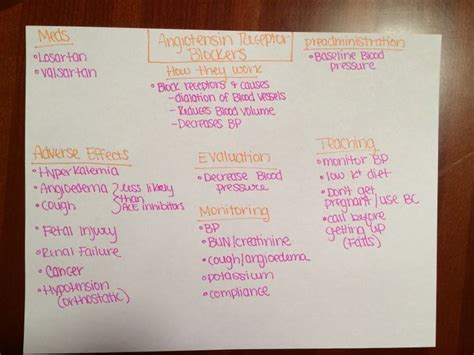 Meds
• Losartan
• Valsartan
Angiotensin Receptor
Blockers
How they work
• Block receptors & causes
- dialation of Blood vessels
- Reduces Blood volume
- Decreases BP
preadministration
• Baseline Blood
pressure
Adverse Effects
• Hyperkalemia
• Angioedema
• Cough
less likely
than
ACE inhibitors
• Fetal Injury
• Renal Failure
• Cancer
• Hypotension
(orthostatic)
Evaluation
• Decrease Blood
pressure
Monitoring
• BP
• BUN/creatinine
• cough/angioedema
• potassium
• compliance
Teaching
• monitor BP
• low K+ diet
• Don't get
pregnant/use BC
• call before
getting up
(Falls)